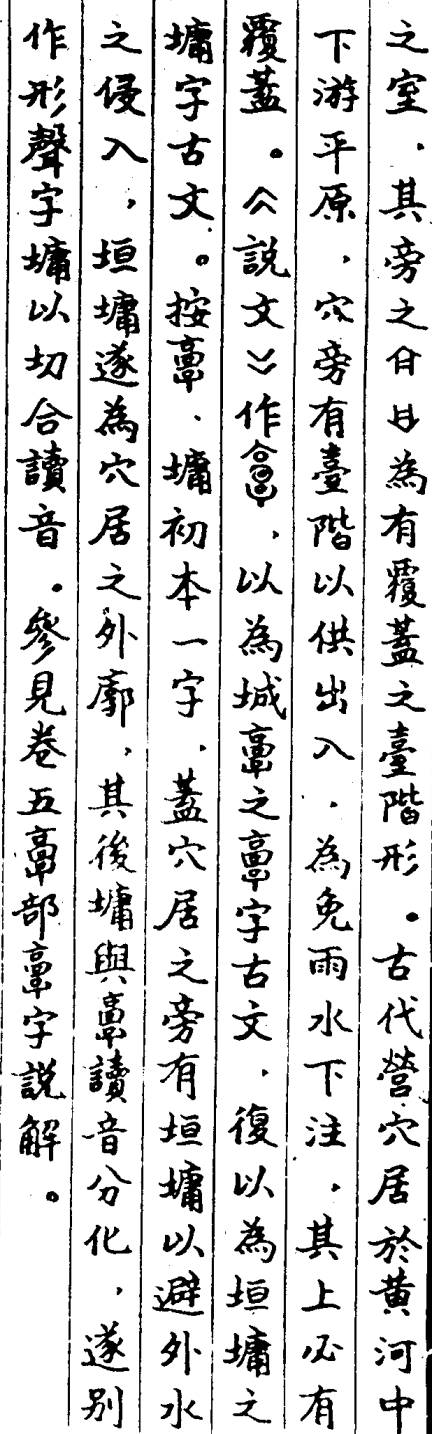 之室，其旁之㿝㠯為有覆蓋之臺階形。古代營穴居於黃河中
下游平原，穴旁有臺階以供出入，為免雨水下注，其上必有
覆蓋。《說文》作𩫏，以為城𩫏之𩫏字古文，復以為垣墉之
墉字古文。按𩫏、墉初本一字，蓋穴居之旁有垣墉以避外水
之侵入，垣墉遂為穴居之外廓，其後墉與𩫏讀音分化，遂別
作形聲字墉以切合讀音。參見卷五𩫏部𩫏字說解。